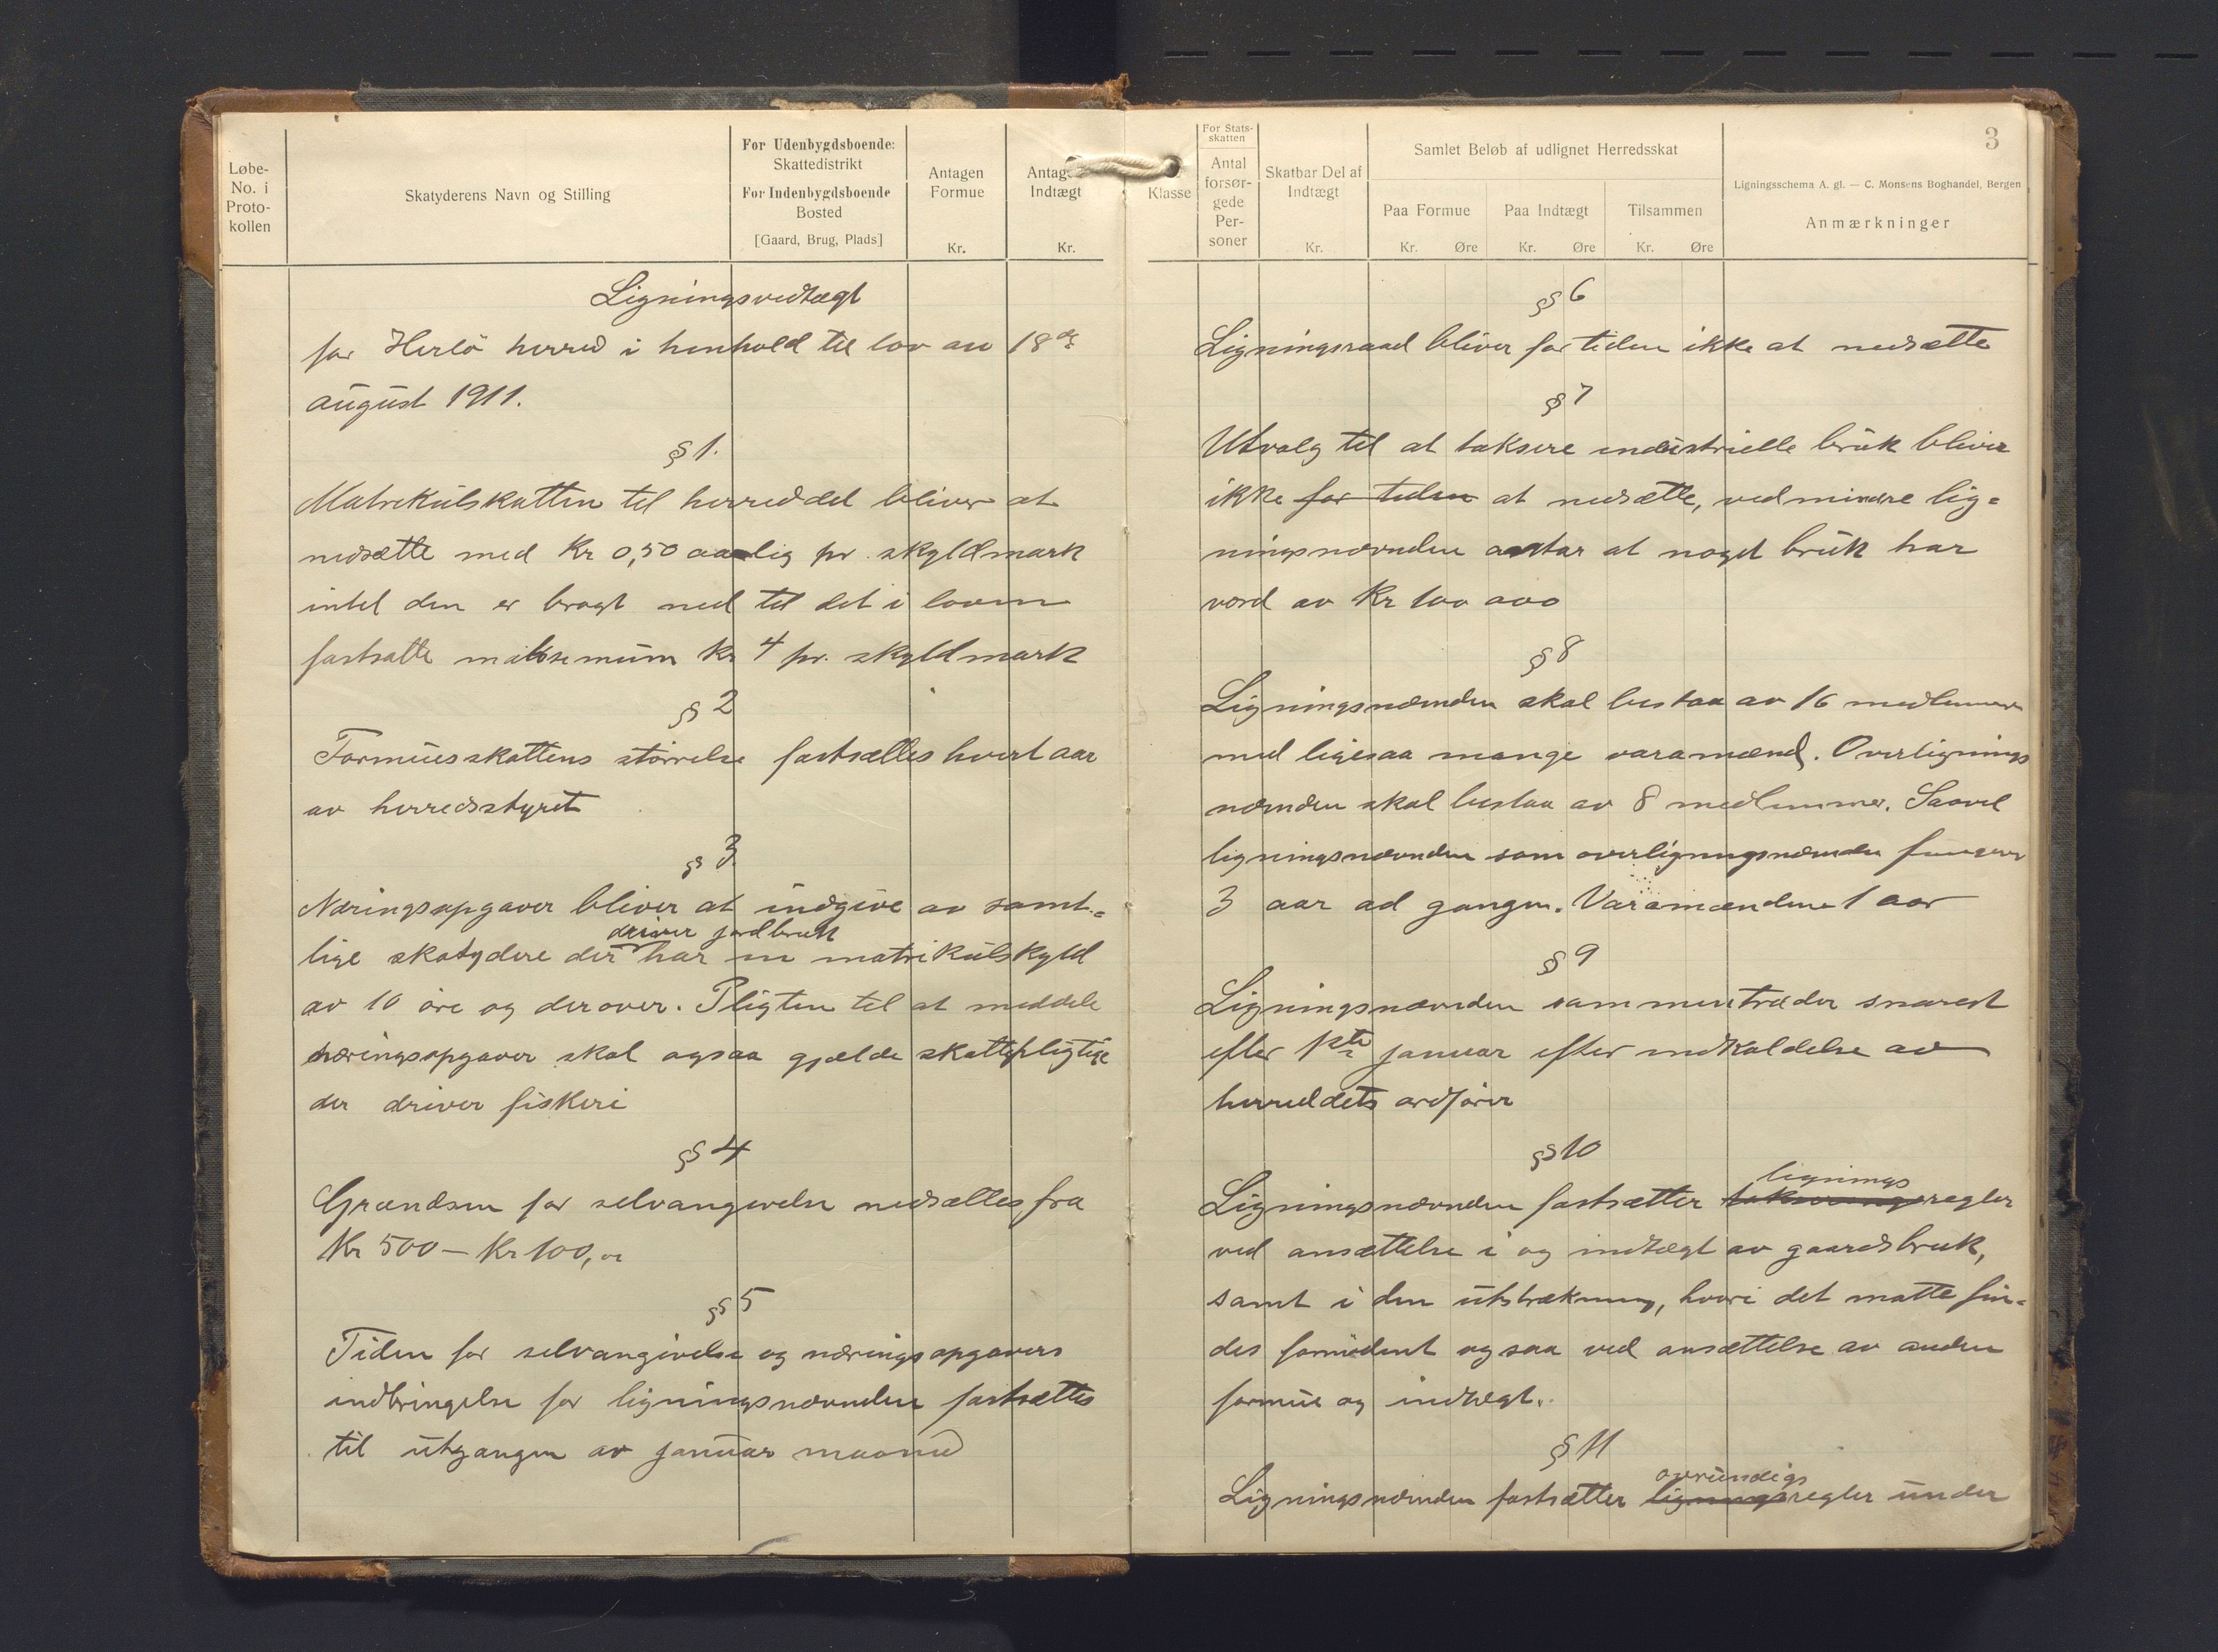 Løbe-
No. i
Proto-
kollen
Skatyderens Navn og Stilling
For Udenbygdsboende:
Skattedistrikt
For Indenbygdsboende
Bosted
[Gaard, Brug, Plads]
Antagen
Formue
Kr.
Indtægt
Kr.
Ligningsvedtægt
for Herlö herred i henhold til lov av 18de
august 1911.
§ 1.
Matrikulskatten til herreddet bliver at
nedsætte med Kr 0,50 aarlig pr. skyldmark
intil den er bragt ned til det i loven
fastsatte maksimum kr 4 pr. skyldmark
§ 2
Formuesskattens størrelse fastsættes hvert aar
av herredsstyret
§ 3
Næringsopgaver bliver at indgive av samt-
driver jordbruk
lige skatydere der har en matrikulskyld
av 10 øre og derover. Pligten til at meddele
næringsopgaver skal ogsaa gjælde skattepligtige
der driver fiskeri
§ 4
Grændsen for selvangivelse nedsættes fra
Kr 500 – Kr 100,00
§ 5
Tiden for selvangivelse og næringsopgavers
indbringelse for ligningsnævnden fastsættes
til utgangen av januar maaned
Klasse
For Stats-
skatten
Antal
forsør-
gede
Per-
soner
Skatbar Del af
Indtægt
Kr.
Samlet Beløb af udlignet Herredsskat
Paa Formue
Kr. Øre
Paa Indtægt
Kr. Øre
Tilsammen
Kr. Øre
3
Ligningsschema A. gl. — C. Monsens Boghandel, Bergen
Anmærkninger
§ 6
Ligningsraad bliver for tiden ikke at nedsætte
§ 7
Utvalg til at taksere industrielle bruk bliver
ikke for tiden at nedsætte, ved mindre lig-
ningsnævnden antar at noget bruk har
værd av Kr 100 000
§ 8
Ligningsnævnden skal bestaa av 16 medlemmer
med ligesaa mange varamænd. Overlignings
nævnden skal bestaa av 8 medlemmer. Saavel
ligningsnævnden som overligningsnævnden fungerer
3 aar ad gangen. Varamændene 1 aar
§ 9
Ligningsnævnden sammentræder snarest
efter 1ste januar efter indkaldelse av
herreddets ordfører
§ 10
lignings
Ligningsnævnden fastsætter takseringsregler
ved ansættelse i og indtægt av gaardsbruk,
samt i den utstrækning, hvori det maatte fin-
des fornødent ogsaa ved ansættelse av anden
formue og indtægt.
§ 11
avrundigs
Ligningsnævnden fastsætter ligningsregler under